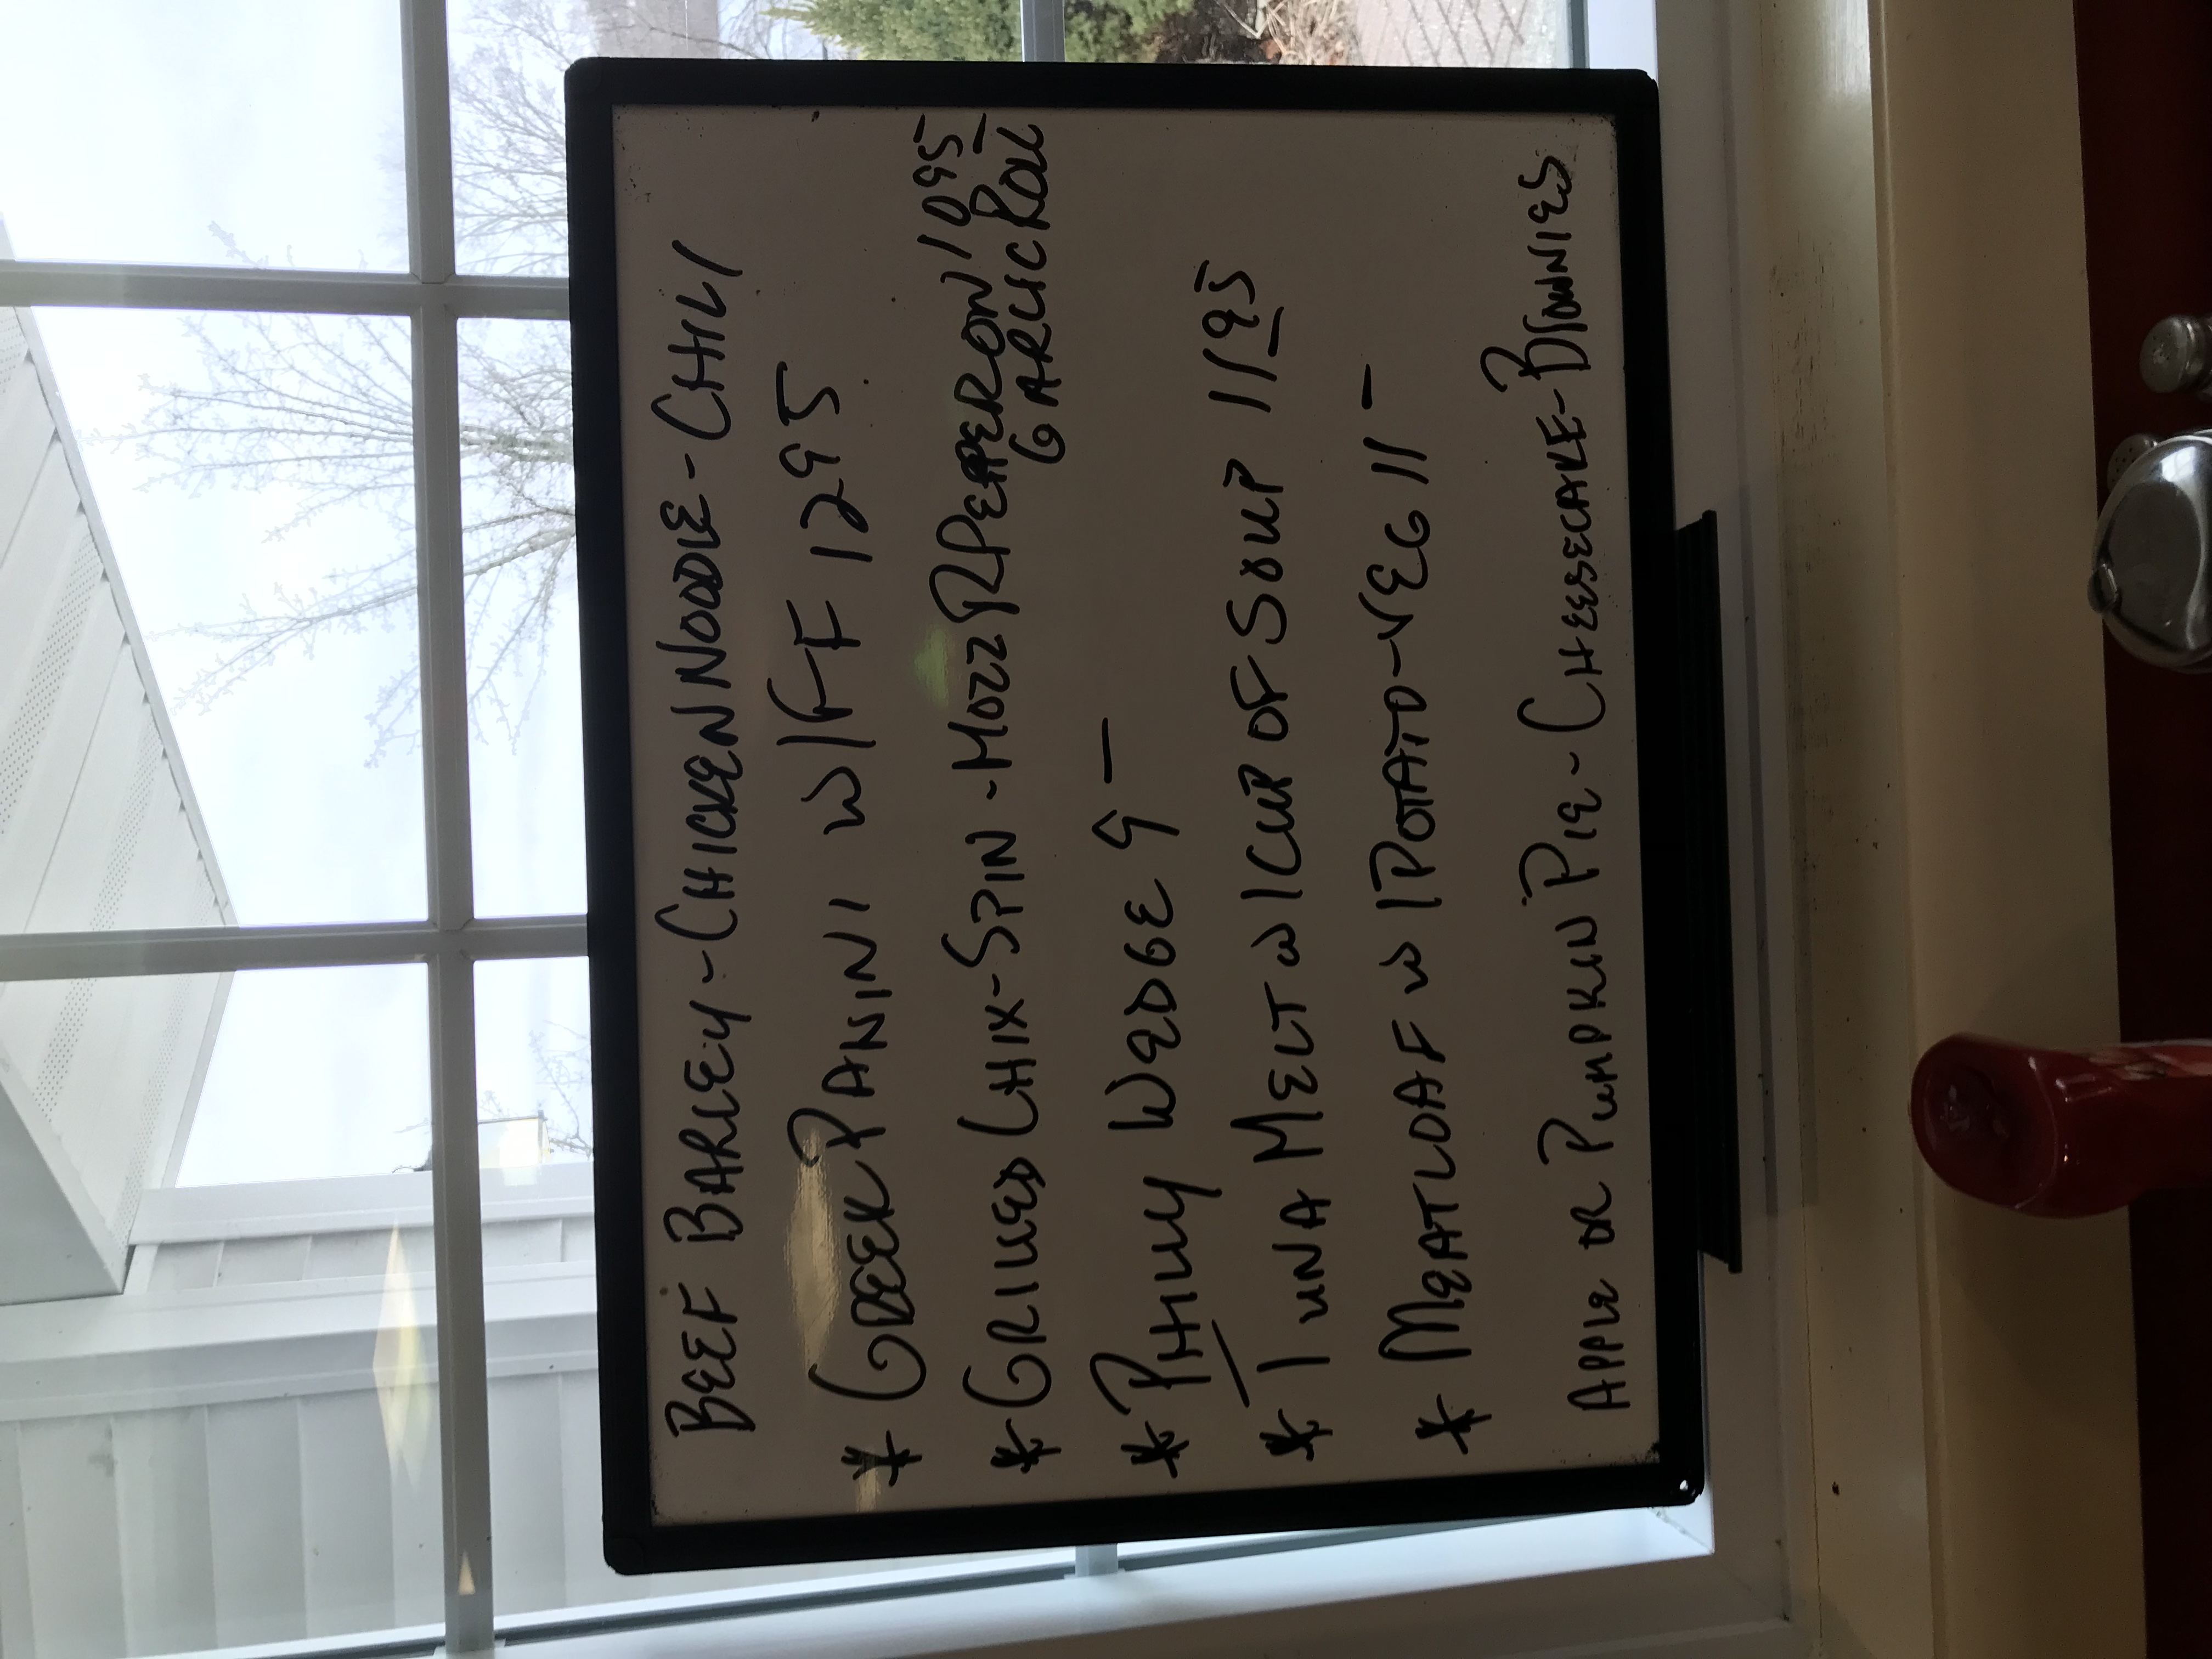 BEEF BARLEY - CHICKEN NOODLE - CHILI
* GREEK PANINI w/FF 1295
* GRILLED CHIX - SPIN - MOZZ R PEPPER ON 1095
GARLIC ROLL
* PHILLY WEDGE 9 -
* TUNA MELT w/ CUP OF SOUP 1195
* MEATLOAF w/ POTATO - VEG 11 -
APPLE OR PUMPKIN PIE - CHEESECAKE - BROWNIES